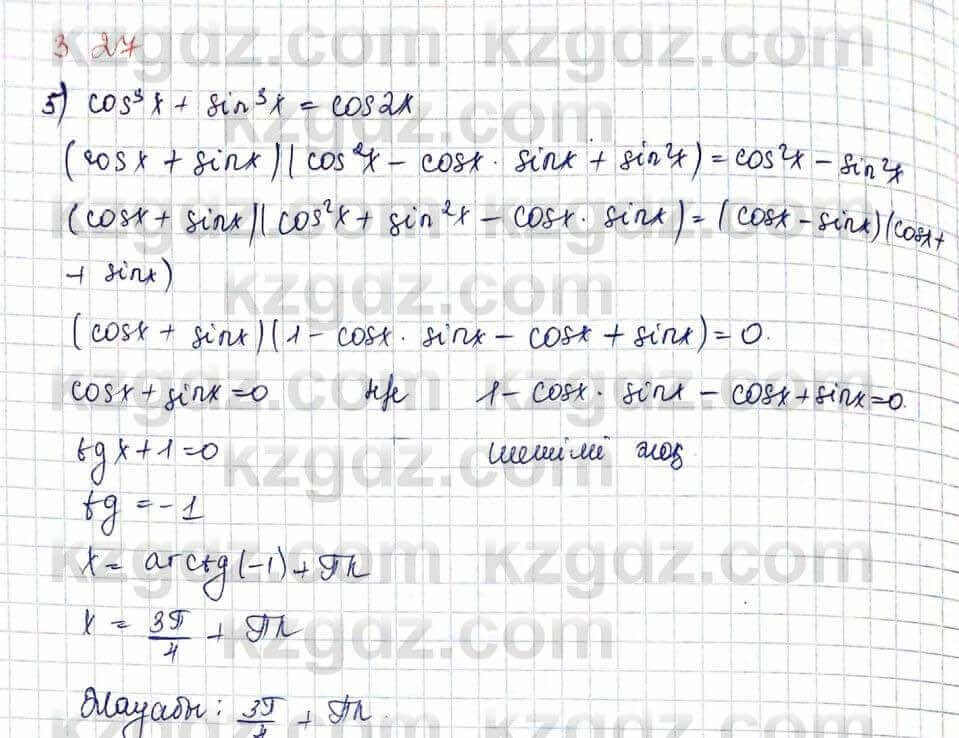 3 27
5) cos³x + sin³x = cos2x
(cosx + sinx)(cos²x - cosx · sinx + sin²x) = cos²x - sin²x
(cosx + sinx)(cos²x + sin²x - cosx · sinx) = (cosx - sinx)(cosx +
+ sinx)
(cosx + sinx)(1 - cosx · sinx - cosx + sinx) = 0.
cosx + sinx = 0 не 1 - cosx · sinx - cosx + sinx = 0.
tgx + 1 = 0 шешімі жоқ
tg = -1
x = arctg(-1) + πk
x = 3π/4 + πk
Жауабы: 3π/4 + πk.
kzgdz.com kzgdz.com
kzgdz.com
kzgdz.com kzgdz.com
kzgdz.com
kzgdz.com kzgdz.com
kzgdz.com
kzgdz.com kzgdz.com
kzgdz.com
kzgdz.com kzgdz.com